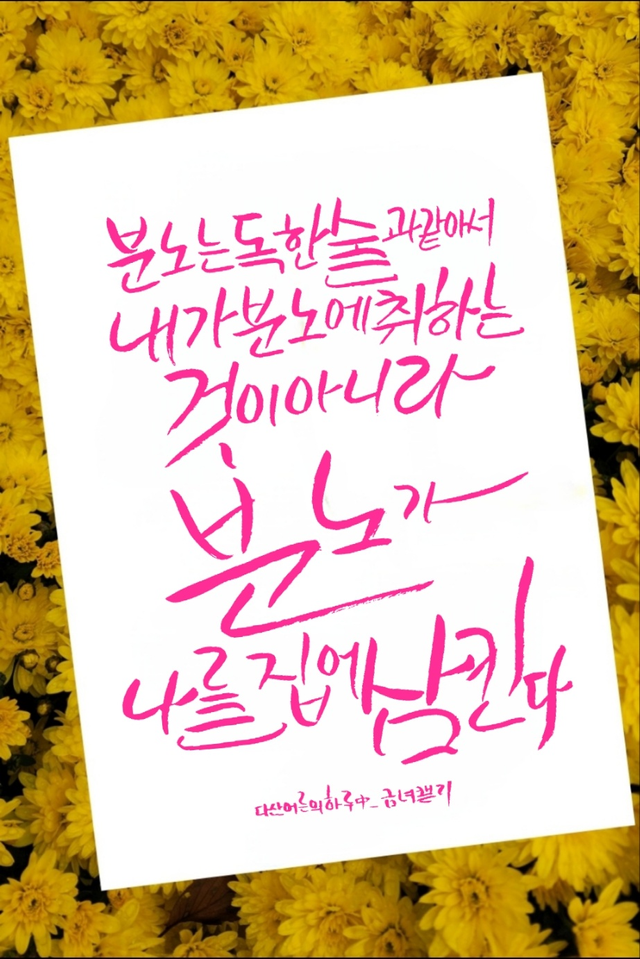 분노는 독한 술과 같아서
내가 분노에 취하는
것이 아니라
분노가
나를 집에 삼킨다
다산어른의하루中_금녀쓰기